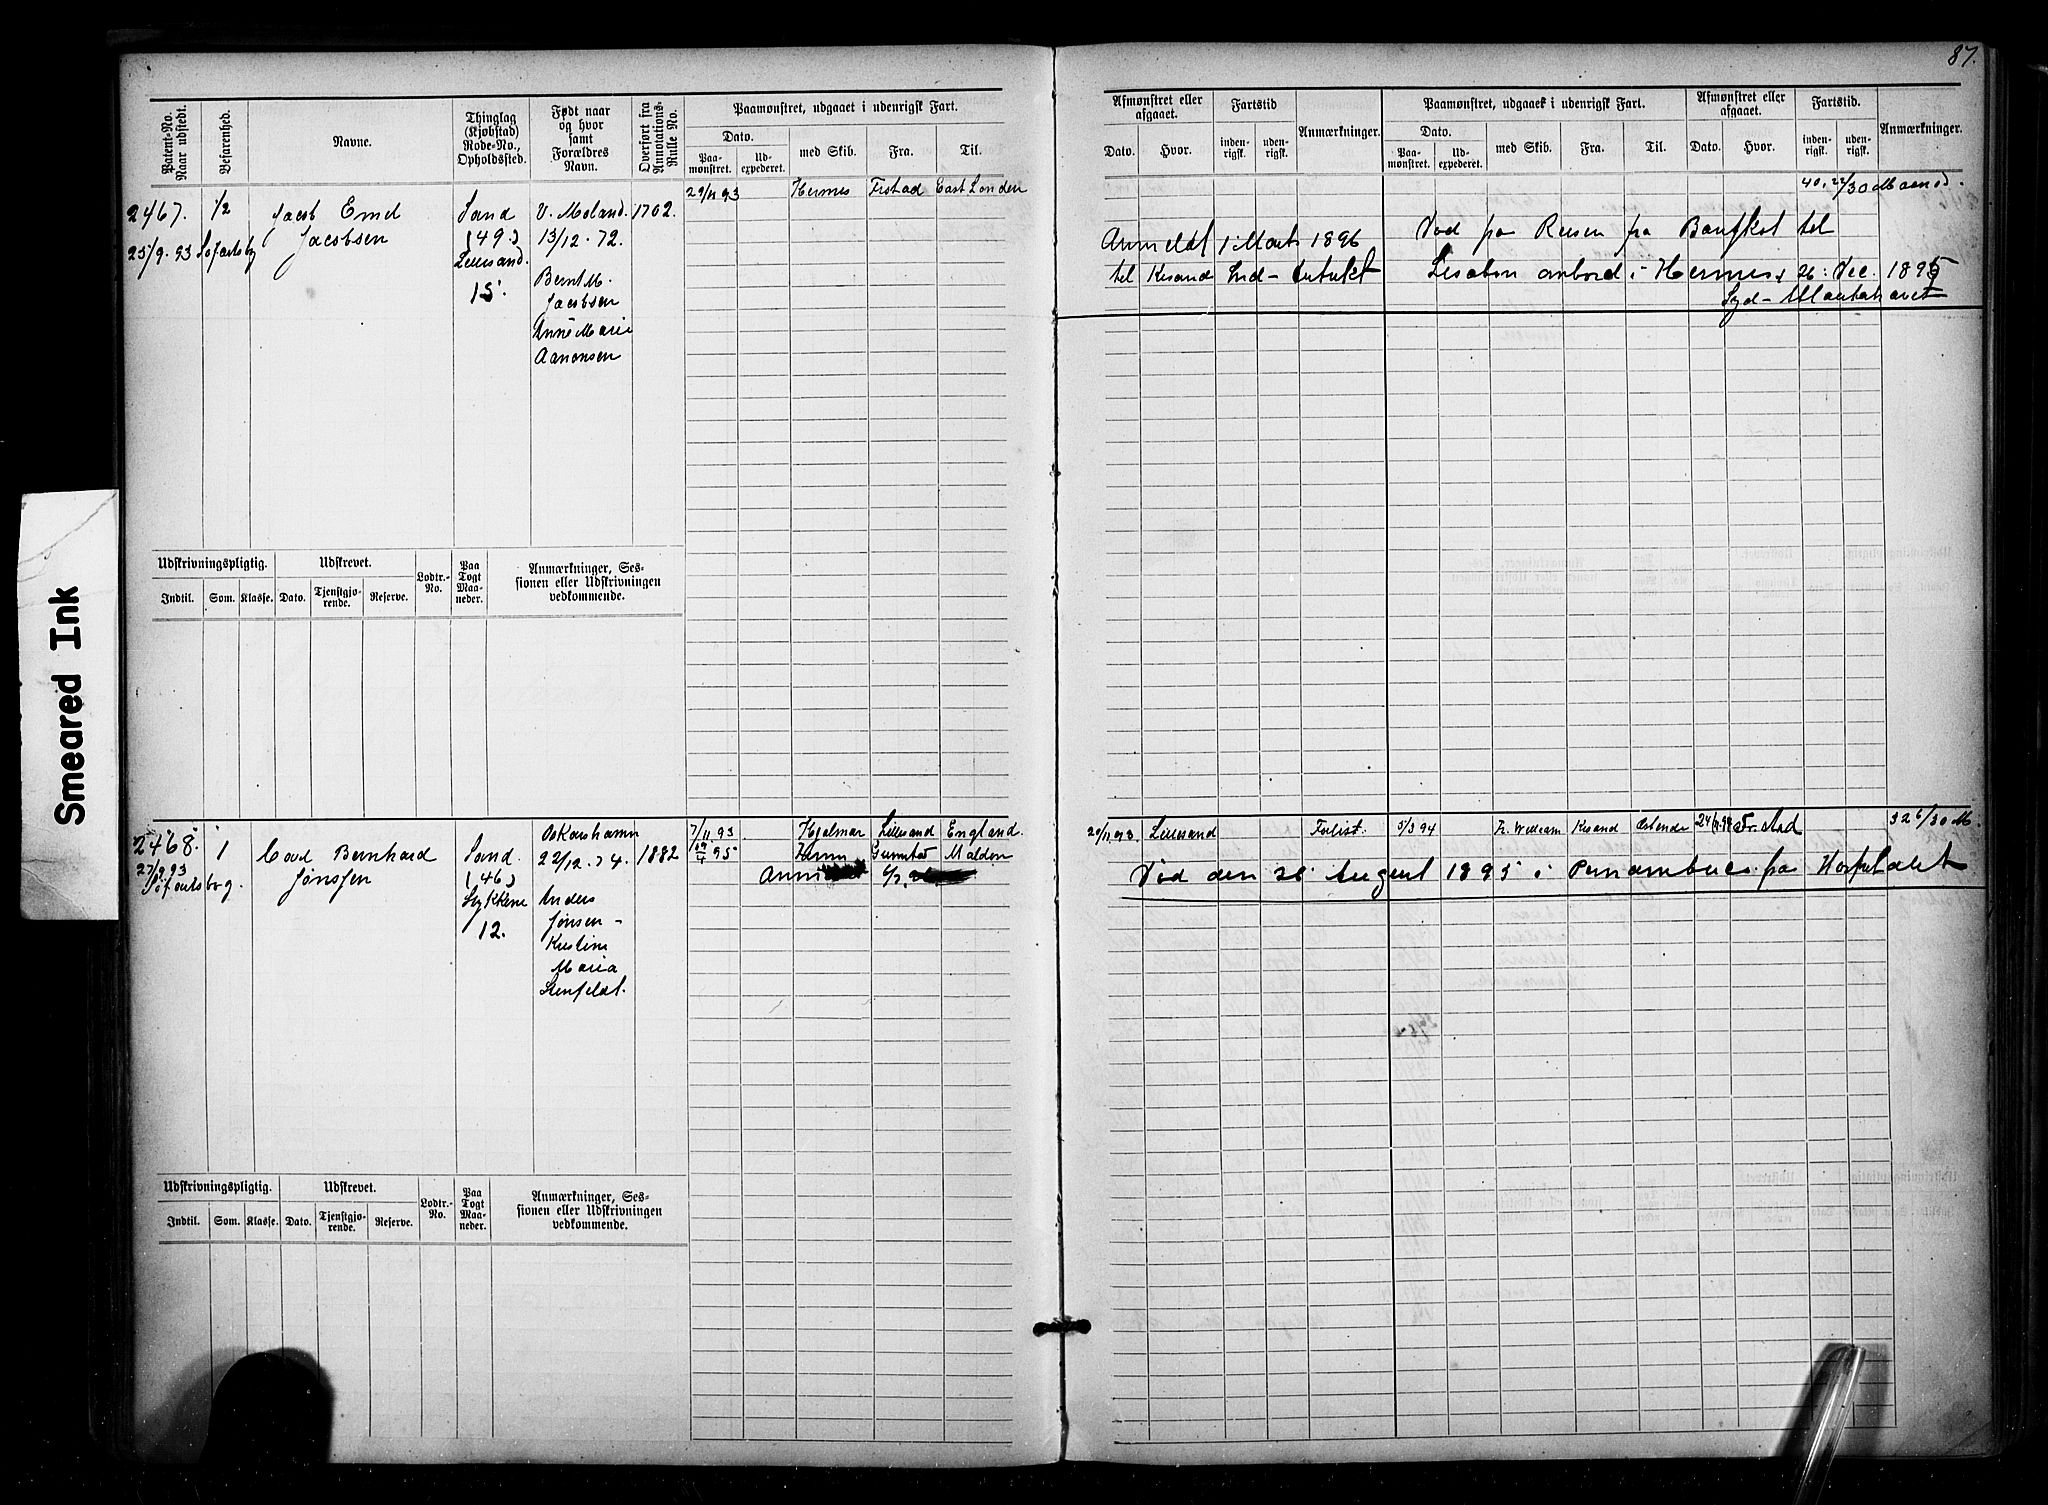 87.
Patent-No. Naar udstedt.
Befarenhed.
Navne.
Thinglag (Kjøbstad) Rode-No., Opholdssted.
Født naar og hvor samt Forældres Navn.
Overført fra Annotations-Rulle No.
Paamønstret, udgaaet i udenrigsk Fart.
Dato.
Paamønstret. Udexpederet. med Skib. Fra. Til.
Afmønstret eller afgaaet.
Dato. Hvor.
Fartstid
indenrigsk. udenrigsk.
Anmærkninger.
Paamønstret, udgaaet i udenrigsk Fart.
Dato.
Paamønstret. Udexpederet. med Skib. Fra. Til.
Afmønstret eller afgaaet.
Dato. Hvor.
Fartstid.
indenrigsk. udenrigsk.
Anmærkninger.
2467. 1/2 Jacob Emil Sand V. Moland. 1702. 29/11 93 Hermes Frstad East London
Jacobsen (49) 13/12. 72.
25/9. 93 Lillesand.
15. Bernt M.
Jacobsen
Anne Marie
Aanonsen
40. 22/30 Maaned.
Anmeldt 1 Marts 1896 Død paa Reisen fra Bangkok til
til Krsand Lissabon ombord i Hermes 26: Dec. 1895
Syd-Atlanterhavet
Udskrivningspligtig. Udskrevet. Lodtr.-No. Paa Togt Maaneder. Anmærkninger, Sessionen eller Udskrivningen vedkommende.
Indtil. Som. Klasse. Dato. Tjenstgjørende. Reserve.
2468. 1 Carl Bernhard Sand. Oskarshamn 1882 7/11 93 Hjalmar Lillesand England.
27/9. 93 Jønsen (46) 22/12. 74. 95 Grimstad Maldon
12. Anders
Jønsen -
Kristine
Maria
Stenfeldt.
20/11 93 Lillesand Forlist. 5/3 94 Fr. William Krsand Ostende Frstad 32 6/30 M.
Død den 28 August 1895 i Pernambuco paa Hospitalet
Udskrivningspligtig. Udskrevet. Lodtr.-No. Paa Togt Maaneder. Anmærkninger, Sessionen eller Udskrivningen vedkommende.
Indtil. Som. Klasse. Dato. Tjenstgjørende. Reserve.
Smeared Ink